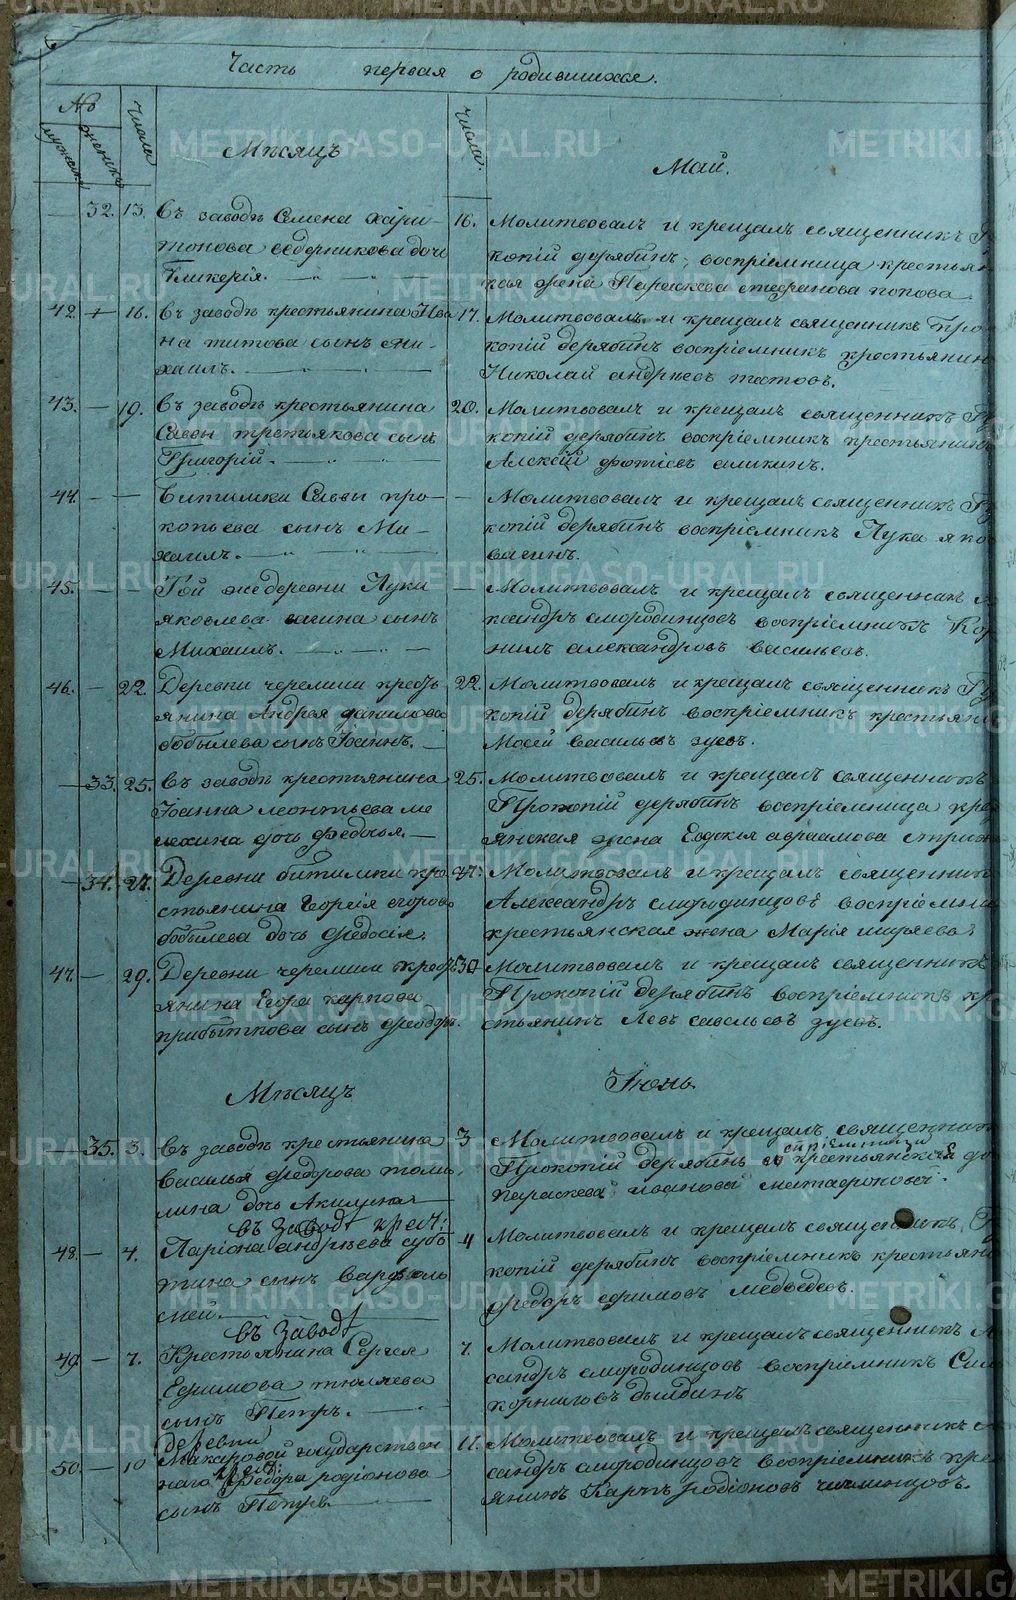 Часть первая о родившихся.
№
мужска
женска
Числа
Мѣсяцъ
Числа.
Май.
32. 13. Въ заводѣ Семена Хари-
тонова ведерникова дочь
Гликерія.
16. Молитвовалъ и крещалъ священникъ Про
копій дерябинъ, воспріемница крестьян
ская жена Параскева стефанова попова.
42. 16. Въ заводѣ крестьянина Ива
на титова сынъ Ми-
хаилъ.
17. Молитвовалъ и крещалъ священникъ Про
копій дерябинъ воспріемникъ крестьянин
Николай андрѣевъ титовъ.
43. — 19. Въ заводѣ крестьянина
Саввы третьякова сынъ
Григорій.
20. Молитвовалъ и крещалъ священникъ Про
копій дерябинъ воспріемникъ крестьянинъ
Алексій фотіевъ аликинъ.
44. — — Битимки Саввы про-
копьева сынъ Ми-
хаилъ.
— Молитвовалъ и крещалъ священникъ Про
копій дерябинъ воспріемникъ Лука яков
вагинъ.
45. — — Той же деревни Луки
яковлева вагина сынъ
Михаилъ.
— Молитвовалъ и крещалъ священникъ Але
ксандръ смородинцовъ воспріемникъ Кор
нилъ александровъ васильевъ.
46. — 22. Деревни черемши кресть
янина Андрея данилова
бобылева сынъ Іоаннъ.
22. Молитвовалъ и крещалъ священникъ Про
копій дерябинъ воспріемникъ крестьяни
Мосей васильевъ зуевъ.
— 33. 25. Въ заводѣ крестьянина
Іоанна леонтьева ме
лехина дочь Федосья.
25. Молитвовалъ и крещалъ священникъ
Прокопій дерябинъ воспріемница крест
янская жена Евдокія авраамова
— 34. 27. Деревни битимки кре
стьянина Георгія егорова
бобылева дочь Федосія.
27. Молитвовалъ и крещалъ священник
Александръ смородинцовъ воспріемни
крестьянская жена Марія ширяева.
47. — 29. Деревни черемши кресть
янина Егора карпова
прибыткова сынъ Федоръ.
30 Молитвовалъ и крещалъ священникъ
Прокопій дерябинъ воспріемникъ кре
стьянинъ Левъ савельевъ зуевъ.
Мѣсяцъ
Іюнь.
— 35. 3. Въ заводѣ крестьянина
Василья Федорова томи
лина дочь Акилина
3 Молитвовалъ и крещалъ священник
Прокопій дерябинъ воспріемница крестьянская до
Параскева иванова митафонова.
въ заводѣ крест:
48. — 4. Ларіона андрѣева субо
тина сынъ Варфоло
мей.
4 Молитвовалъ и крещалъ священникъ Про
копій дерябинъ воспріемникъ крестьяни
Федоръ ефимовъ медведевъ.
въ заводѣ
49. — 7. Крестьянина Сергея
Ефимова тюляева
сынъ Петръ.
7. Молитвовалъ и крещалъ священникъ Але
ксандръ смородинцовъ воспріемникъ Сил
корниловъ дылдинъ
деревни
50. — 10 Макаровой государствен
наго крест: Федора родіонова
сынъ Петръ.
11. Молитвовалъ и крещалъ священникъ Але
ксандръ смородинцовъ воспріемникъ крест
янинъ Карпъ родіоновъ
METRIKI.GASO-URAL.RU